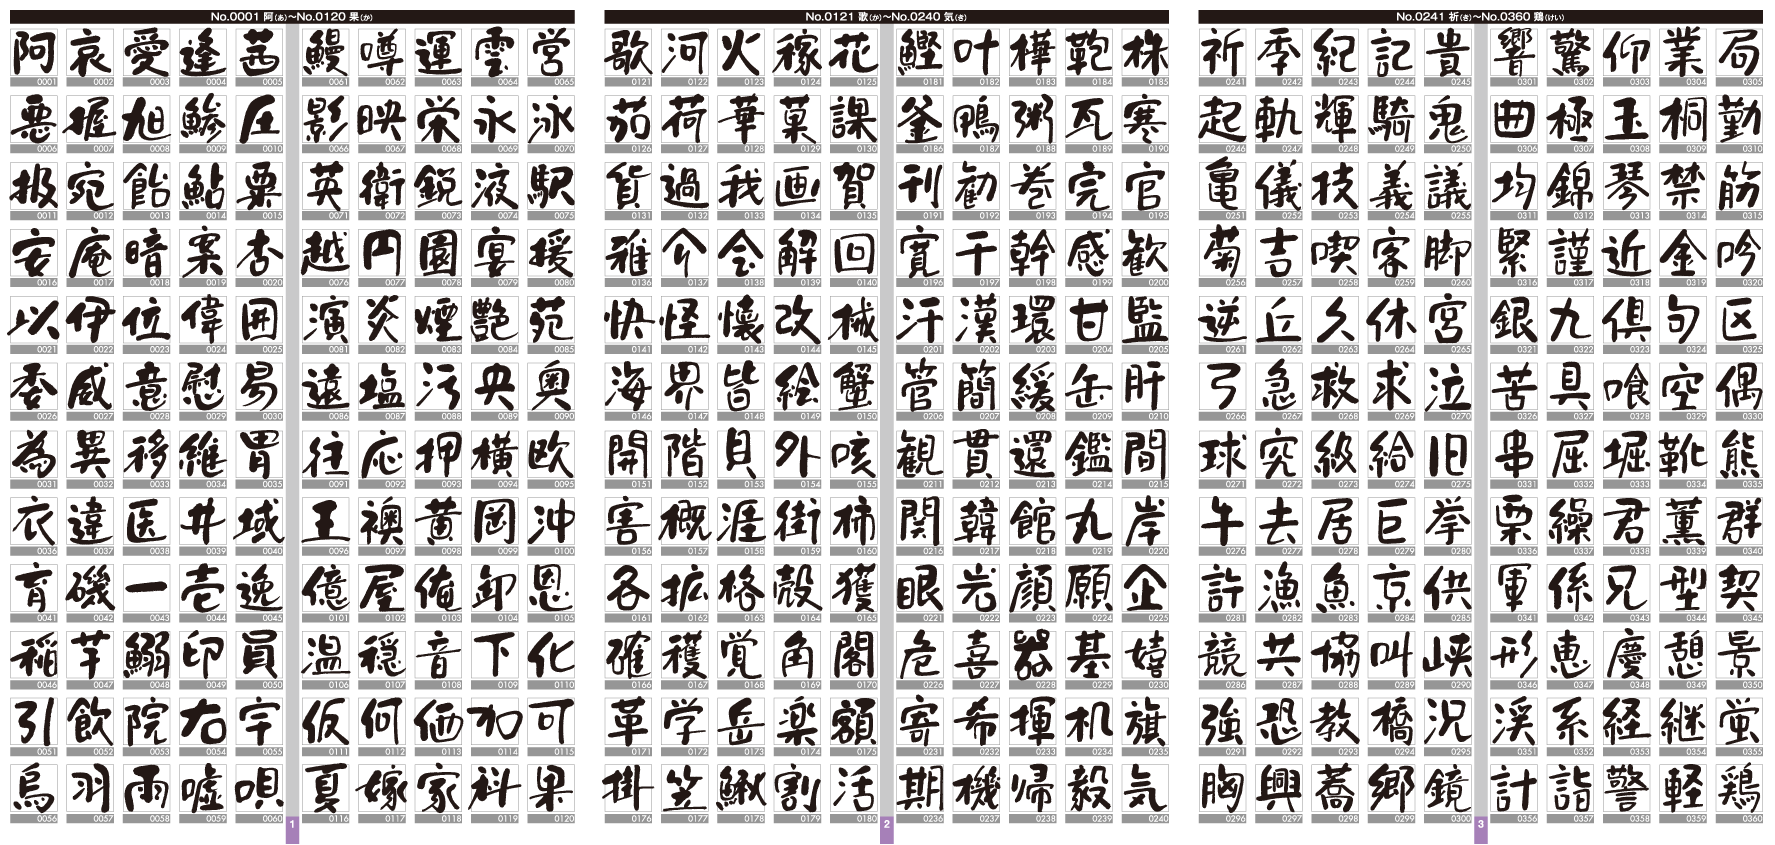 No.0001 阿(あ)〜No.0120 果(か)
阿 哀 愛 逢 茜
0001 0002 0003 0004 0005
悪 握 旭 鯵 圧
0006 0007 0008 0009 0010
扱 宛 飴 鮎 粟
0011 0012 0013 0014 0015
安 庵 暗 案 杏
0016 0017 0018 0019 0020
以 伊 位 偉 囲
0021 0022 0023 0024 0025
委 威 意 慰 易
0026 0027 0028 0029 0030
為 異 移 維 胃
0031 0032 0033 0034 0035
衣 違 医 井 域
0036 0037 0038 0039 0040
育 磯 一 壱 逸
0041 0042 0043 0044 0045
稲 芋 鰯 印 員
0046 0047 0048 0049 0050
引 飲 院 右 宇
0051 0052 0053 0054 0055
烏 羽 雨 嘘 唄
0056 0057 0058 0059 0060
鰻 噂 運 雲 営
0061 0062 0063 0064 0065
影 映 栄 永 泳
0066 0067 0068 0069 0070
英 衛 鋭 液 駅
0071 0072 0073 0074 0075
越 円 園 宴 援
0076 0077 0078 0079 0080
演 炎 煙 艶 苑
0081 0082 0083 0084 0085
遠 塩 汚 央 奥
0086 0087 0088 0089 0090
往 応 押 横 欧
0091 0092 0093 0094 0095
王 襖 黄 岡 沖
0096 0097 0098 0099 0100
億 屋 俺 卸 恩
0101 0102 0103 0104 0105
温 穏 音 下 化
0106 0107 0108 0109 0110
仮 何 価 加 可
0111 0112 0113 0114 0115
夏 嫁 家 科 果
0116 0117 0118 0119 0120
1
No.0121 歌(か)〜No.0240 気(き)
歌 河 火 稼 花
0121 0122 0123 0124 0125
茄 荷 華 菓 課
0126 0127 0128 0129 0130
貨 過 我 画 賀
0131 0132 0133 0134 0135
雅 介 会 解 回
0136 0137 0138 0139 0140
快 怪 懐 改 械
0141 0142 0143 0144 0145
海 界 皆 絵 蟹
0146 0147 0148 0149 0150
開 階 貝 外 咳
0151 0152 0153 0154 0155
害 概 涯 街 柿
0156 0157 0158 0159 0160
各 拡 格 殻 獲
0161 0162 0163 0164 0165
確 穫 覚 角 閣
0166 0167 0168 0169 0170
革 学 岳 楽 額
0171 0172 0173 0174 0175
掛 笠 鰍 割 活
0176 0177 0178 0179 0180
鰹 叶 樺 鞄 株
0181 0182 0183 0184 0185
釜 鴨 粥 瓦 寒
0186 0187 0188 0189 0190
刊 勧 巻 完 官
0191 0192 0193 0194 0195
寛 干 幹 感 歓
0196 0197 0198 0199 0200
汗 漢 環 甘 監
0201 0202 0203 0204 0205
管 簡 緩 缶 肝
0206 0207 0208 0209 0210
観 貫 還 鑑 間
0211 0212 0213 0214 0215
関 韓 館 丸 岸
0216 0217 0218 0219 0220
眼 岩 顔 願 企
0221 0222 0223 0224 0225
危 喜 器 基 嬉
0226 0227 0228 0229 0230
寄 希 揮 机 旗
0231 0232 0233 0234 0235
期 機 帰 毅 気
0236 0237 0238 0239 0240
2
No.0241 祈(き)〜No.0360 鶏(けい)
祈 季 紀 記 貴
0241 0242 0243 0244 0245
起 軌 輝 騎 鬼
0246 0247 0248 0249 0250
亀 儀 技 義 議
0251 0252 0253 0254 0255
菊 吉 喫 客 脚
0256 0257 0258 0259 0260
逆 丘 久 休 宮
0261 0262 0263 0264 0265
弓 急 救 求 泣
0266 0267 0268 0269 0270
球 究 級 給 旧
0271 0272 0273 0274 0275
牛 去 居 巨 挙
0276 0277 0278 0279 0280
許 漁 魚 京 供
0281 0282 0283 0284 0285
競 共 協 叫 峡
0286 0287 0288 0289 0290
強 恐 教 橋 況
0291 0292 0293 0294 0295
胸 興 蕎 郷 鏡
0296 0297 0298 0299 0300
響 驚 仰 業 局
0301 0302 0303 0304 0305
曲 極 玉 桐 勤
0306 0307 0308 0309 0310
均 錦 琴 禁 筋
0311 0312 0313 0314 0315
緊 謹 近 金 吟
0316 0317 0318 0319 0320
銀 九 倶 句 区
0321 0322 0323 0324 0325
苦 具 喰 空 偶
0326 0327 0328 0329 0330
串 屈 堀 靴 熊
0331 0332 0333 0334 0335
栗 繰 君 薫 群
0336 0337 0338 0339 0340
軍 係 兄 型 契
0341 0342 0343 0344 0345
形 恵 慶 憩 景
0346 0347 0348 0349 0350
渓 系 経 継 蛍
0351 0352 0353 0354 0355
計 詣 警 軽 鶏
0356 0357 0358 0359 0360
3